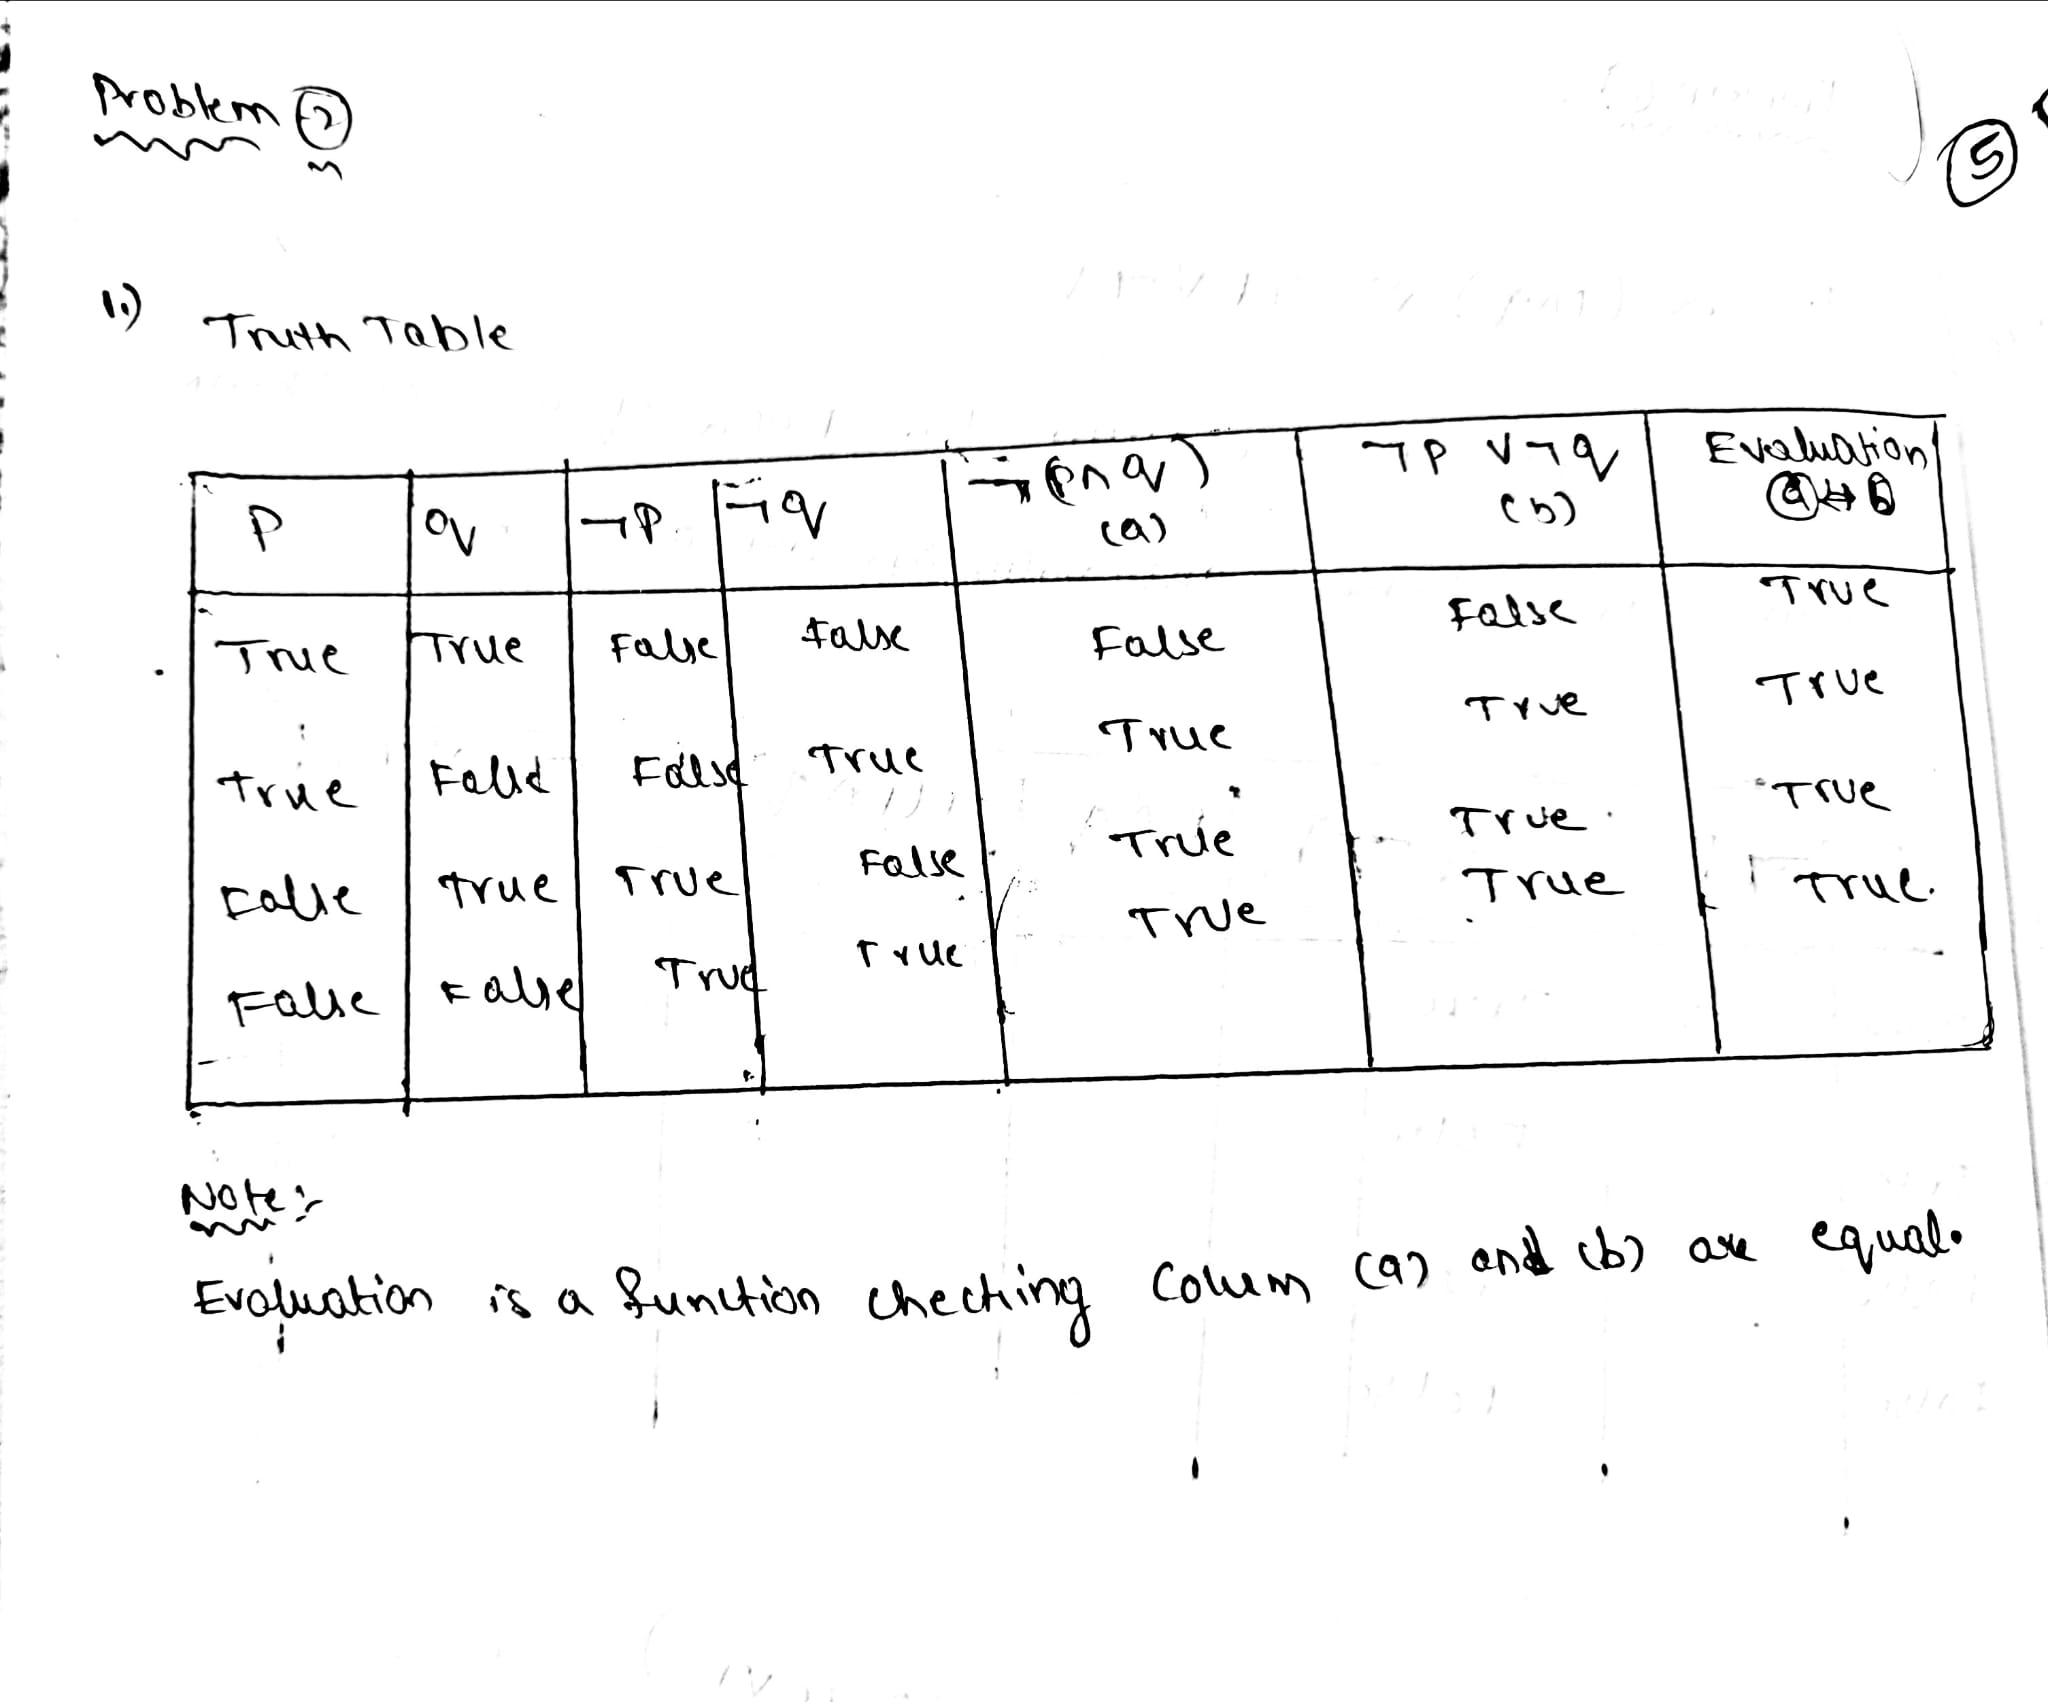 Problem ②
⑤
1.) Truth Table
p | q | ¬p | ¬q | ¬(p∧q) (a) | ¬p ∨ ¬q (b) | Evaluation ⓐ↔ⓑ
True | True | False | False | False | False | True
True | False | False | True | True | True | True
False | True | True | False | True | True | True
False | False | True | True | True | True | True.
Note:-
Evaluation is a function checking Colum (a) and (b) are equal.